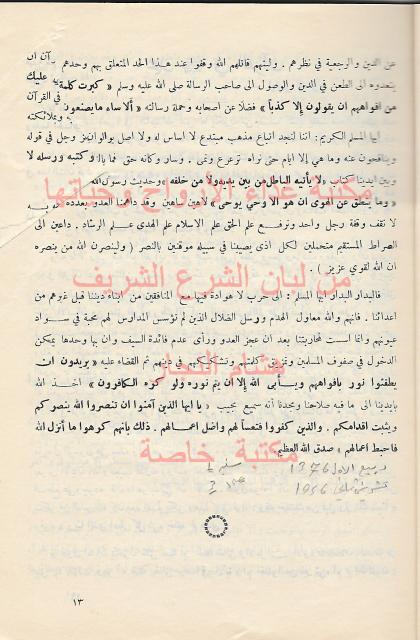 عن الدين والرجعية في نظرهم . وليتهم قاتلهم الله وقفوا عند هذا الحد المتعلق بهم وحدهم
يتعدوه الى الطعن في الدين والوصول الى صاحب الرسالة صلى الله عليه وسلم « كبرت كلمة
من افواههم ان يقولون إلا كذباً » فضلا عن اصحابه وحملة رسالته « ألا ساء ما يصنعون
ايها المسلم الكريم : اننا لنجد اتباع مذهب مبتدع لا اساس له ولا اصل يوالون
وينافحون عنه وما هي إلا ايام حتى نراه ترعرع ونمى . وسار وكانه حتى فما بالا
وبين ايدينا كتاب « لا يأتيه الباطل من بين يديه ولا من خلفه » وحديث رسول الله
« وما ينطق عن الهوى ان هو الا وحي يوحى » لاهين ساهين وقد داهمنا العدو بعدده
لا نقف وقفة رجل واحد ونرفع علم الحق علم الاسلام علم الهدى علم الرشاد . داعين الى
الصراط المستقيم متحملين لكل اذى يصيبنا في سبيله موقنين بالنصر ( ولينصرن الله من ينصره
ان الله لقوي عزيز ) .
فالبدار البدار ايها المسلم : الى حرب لا هوادة فيها مع المنافقين من ابناء ديننا قبل غيرهم من
اعدائنا . فانهم والله معاول الهدم ورسل الضلال الذين لم نؤسس المدارس لهم محبة في سواد
عيونهم وانما اسست لمحاربتنا بعد ان عجز العدو ورأى عدم فائدة السيف وان بها وحدها يمكن
الدخول في صفوف المسلمين وتمزيق كلمتهم وتشكيكهم في دينهم ثم القضاء عليه « يريدون ان
يطفئوا نور الله بافواههم ويأبى الله إلا ان يتم نوره ولو كره الكافرون » اخذ الله
بايدينا الى ما فيه صلاحنا ومجدنا أنه سميع مجيب « يا ايها الذين آمنوا ان تنصروا الله ينصركم
ويثبت اقدامكم . والذين كفروا فتعساً لهم واضل اعمالهم . ذلك بانهم كرهوا ما أنزل الله
فاحبط اعمالهم » صدق الله العظيم
ربيع الاول 1376
تشرين 1956
١٣
مكتبة غذاء الأرواح وحياتها
من لبان الشرع الشريف
هشام النجار
مكتبة خاصة